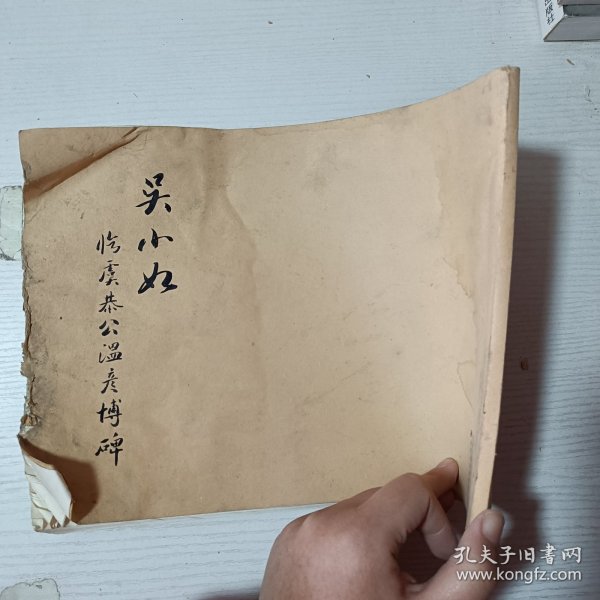 吴小如
临虞恭公温彦博碑
孔夫子旧書网
www.kongfz.com
出版社